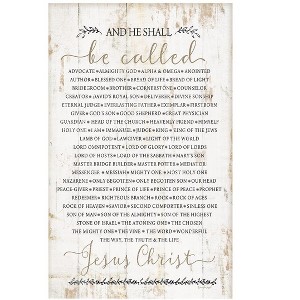 AND HE SHALL
be called
ADVOCATE ALMIGHTY GOD ALPHA & OMEGA ANOINTED
AUTHOR BLESSED ONE BREAD OF LIFE BREAD OF LIGHT
BRIDEGROOM BROTHER CORNERSTONE COUNSELOR
CREATOR DAVID'S ROYAL SON DELIVERER DIVINE SERVANT SHIP
ETERNAL JUDGE EVERLASTING FATHER EXEMPLAR FIRSTBORN
GIVER GOD'S SON GOOD SHEPHERD GREAT PHYSICIAN
GUARDIAN HEAD OF THE CHURCH HEAVENLY FRIEND HIMSELF
HOLY ONE I AM IMMANUEL JUDGE KING KING OF THE JEWS
LAMB OF GOD LAWGIVER LIGHT OF THE WORLD
LORD OMNIPOTENT LORD OF GLORY LORD OF LORDS
LORD OF HOSTS LORD OF THE SABBATH MARY'S SON
MASTER BRIDGE BUILDER MASTER POTTER MEDIATOR
MESSENGER MESSIAH MIGHTY ONE MOST HOLY ONE
NAZARENE ONLY BEGOTTEN ONLY BEGOTTEN SON OUR HEAD
PEACE-GIVER PRIEST PRINCE OF LIFE PRINCE OF PEACE PROPHET
REDEEMER RIGHTEOUS BRANCH ROCK ROCK OF AGES
ROCK OF HEAVEN SAVIOR SECOND COMFORTER SINLESS ONE
SON OF MAN SON OF THE ALMIGHTY SON OF THE HIGHEST
STONE OF ISRAEL THE ATONING ONE THE CHOSEN
THE MIGHTY ONE THE VINE THE WORD WONDERFUL
THE WAY, THE TRUTH & THE LIFE
Jesus Christ